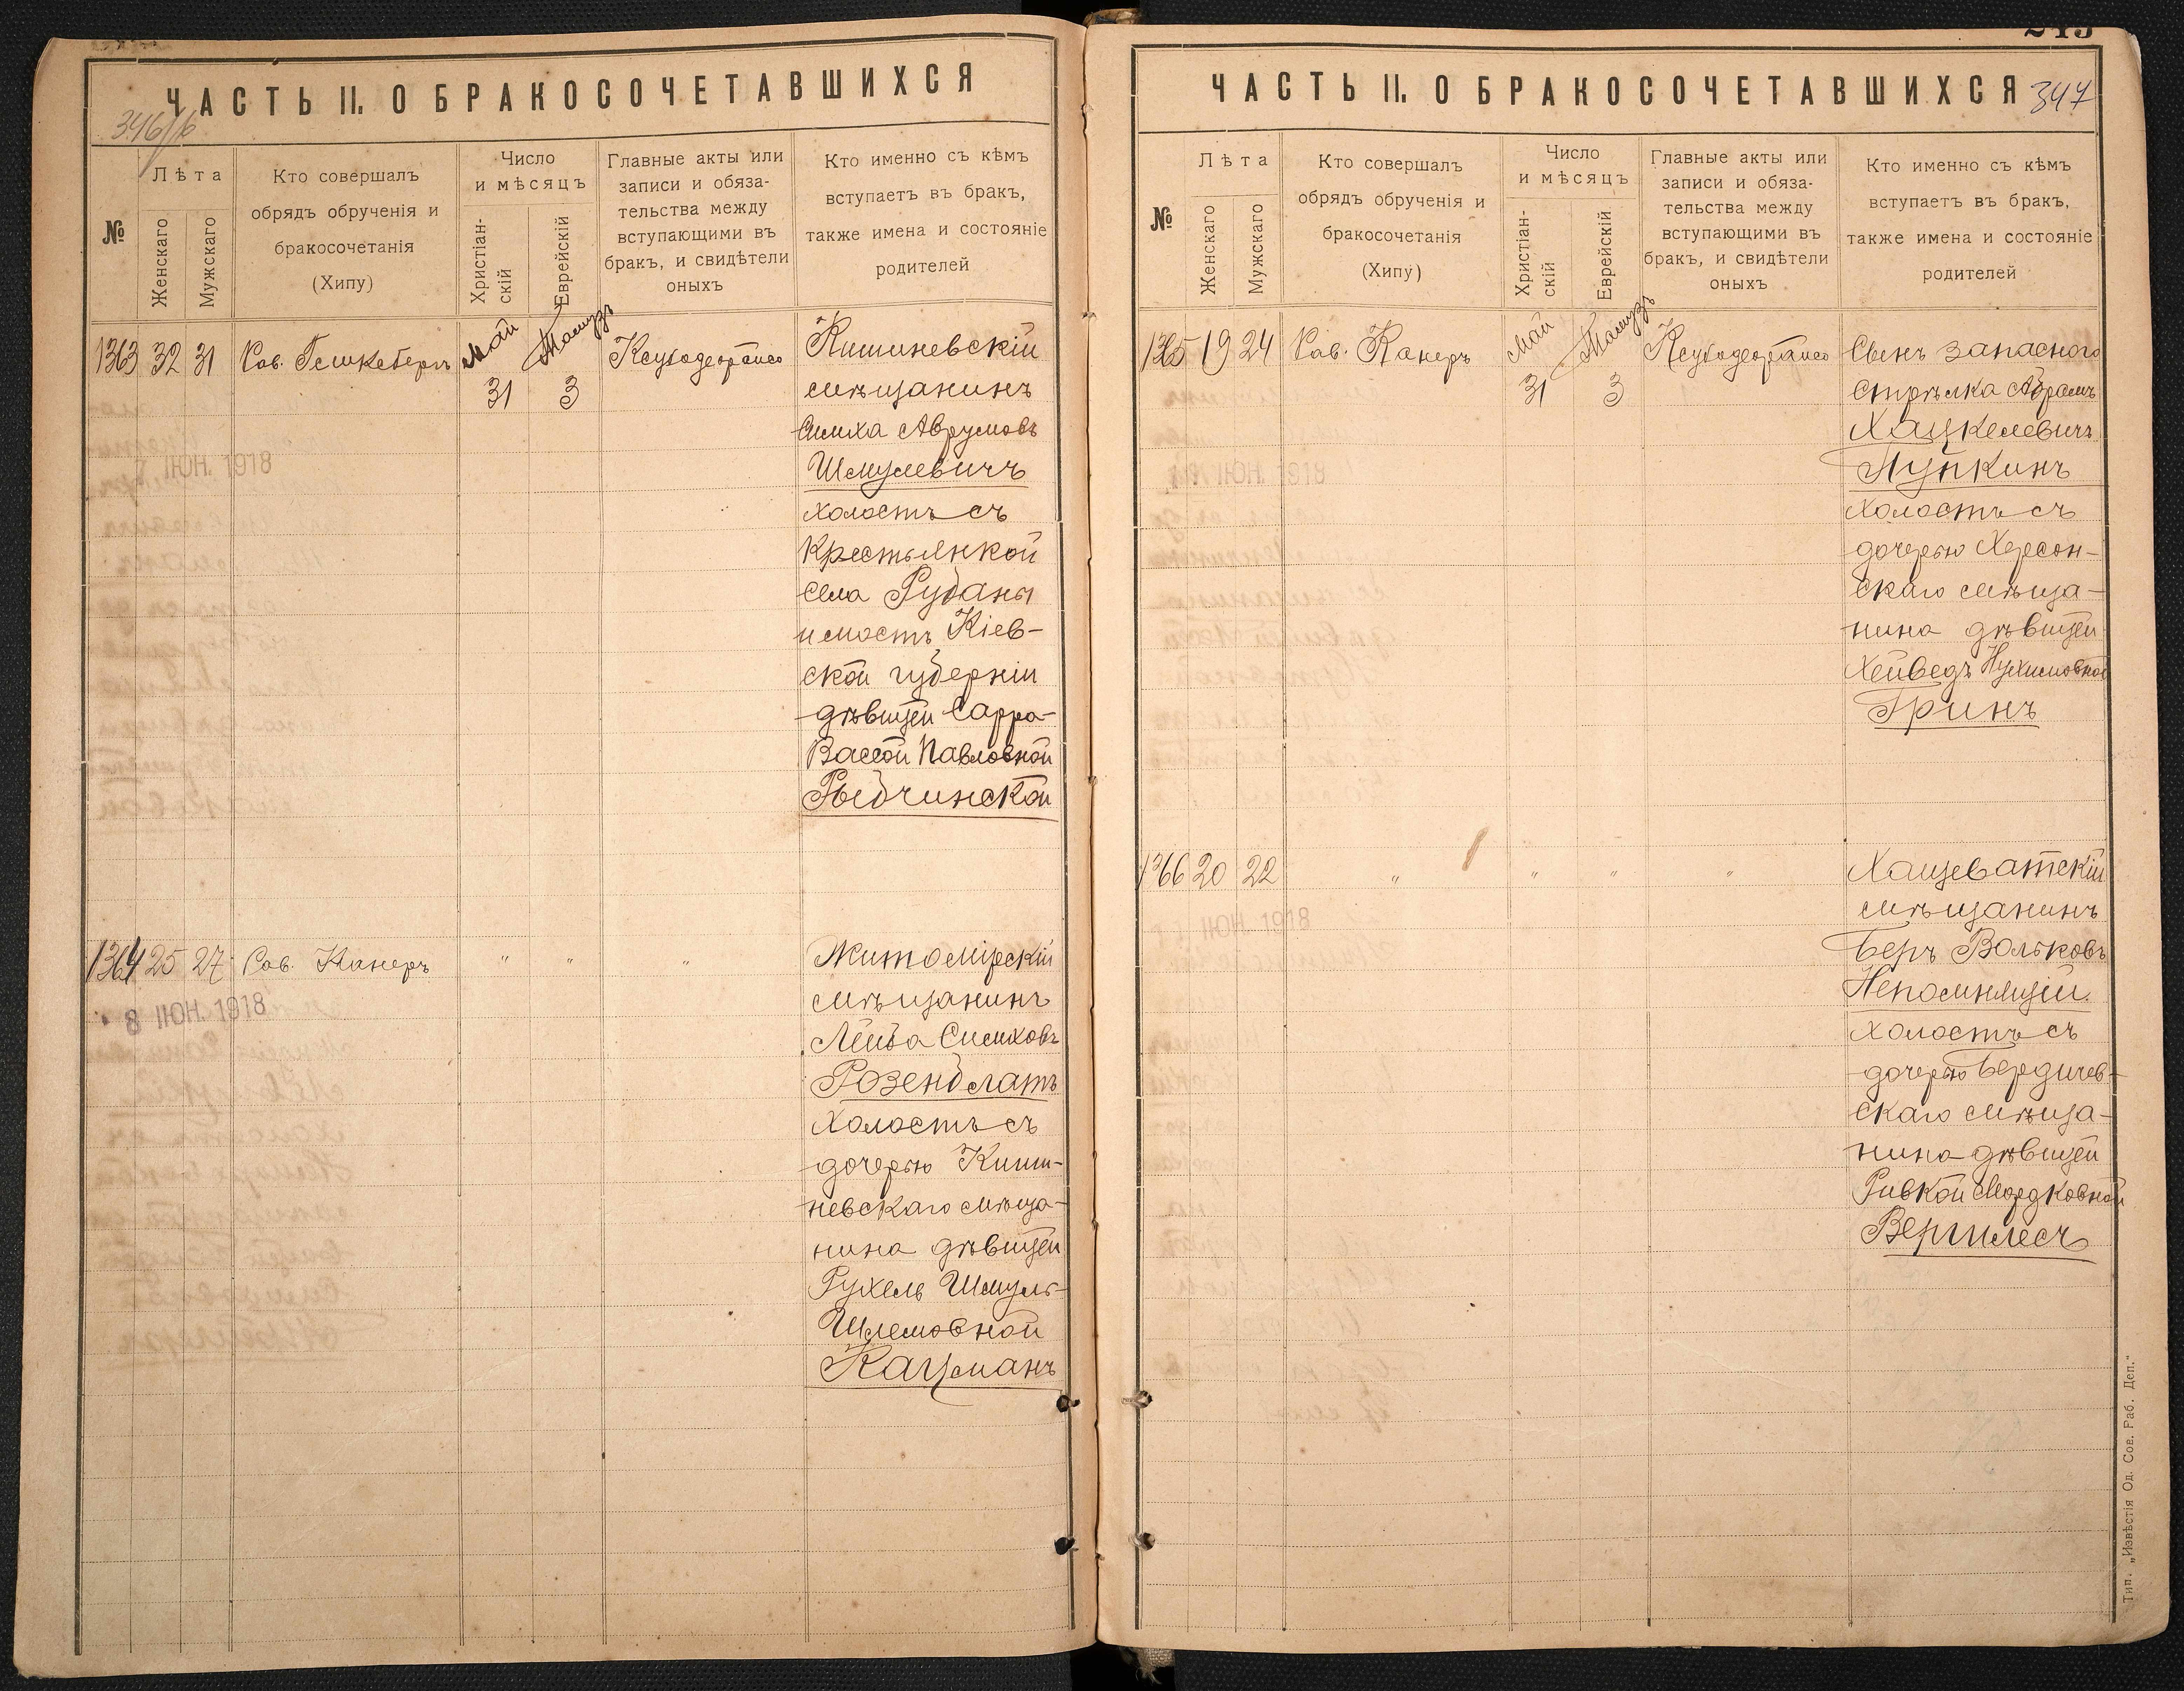 ЧАСТЬ II. О БРАКОСОЧЕТАВШИХСЯ
346/б
№
Лѣта
Женскаго
Мужскаго
Кто совершалъ
обрядъ обрученія и
бракосочетанія
(Хипу)
Число
и мѣсяцъ
Христіан-
скій
Еврейскій
Главные акты или
записи и обяза-
тельства между
вступающими въ
бракъ, и свидѣтели
оныхъ
Кто именно съ кѣмъ
вступаетъ въ бракъ,
также имена и состояніе
родителей
1363 32 31 Рав.
Май
31
Тамузъ
3
Кишиневскій
мѣщанинъ
Симха Аврумовъ
Шмулевичъ
холостъ съ
крестьянкой
села Рубаны
мостъ Кіев-
ской губерніи
дѣвицей Сарра-
Вассой Павловной
Рыбчинской
7 ІЮН. 1918
1364 25 27 Рав. Канеръ " " "
Житомірскій
мѣщанинъ
Лейба Симховъ
Розенблатъ
холостъ съ
дочерью Киши-
невскаго мѣща-
нина дѣвицей
Рухель Шмуль-
Шлемовной
Кацманъ
8 ІЮН. 1918
243
ЧАСТЬ II. О БРАКОСОЧЕТАВШИХСЯ
347
№
Лѣта
Женскаго
Мужскаго
Кто совершалъ
обрядъ обрученія и
бракосочетанія
(Хипу)
Число
и мѣсяцъ
Христіан-
скій
Еврейскій
Главные акты или
записи и обяза-
тельства между
вступающими въ
бракъ, и свидѣтели
оныхъ
Кто именно съ кѣмъ
вступаетъ въ бракъ,
также имена и состояніе
родителей
1365 19 24 Рав. Канеръ
Май
31
Тамузъ
3
Сынъ запасного
стрѣлка Абрамъ
Хацкелевичъ
Пупкинъ
холостъ съ
дочерью Херсон-
скаго мѣща-
нина дѣвицей
Хейведъ Нухимовной
Гринъ
ІЮН. 1918
1366 20 22 " " " "
Хащеватскій
мѣщанинъ
Беръ Вольковъ
Непомнящій
холостъ съ
дочерью Бердичев-
скаго мѣща-
нина дѣвицей
Ривкой Мордковной
Вергилесъ
ІЮН. 1918
Тип. „Извѣстія Од. Сов. Раб. Деп.“